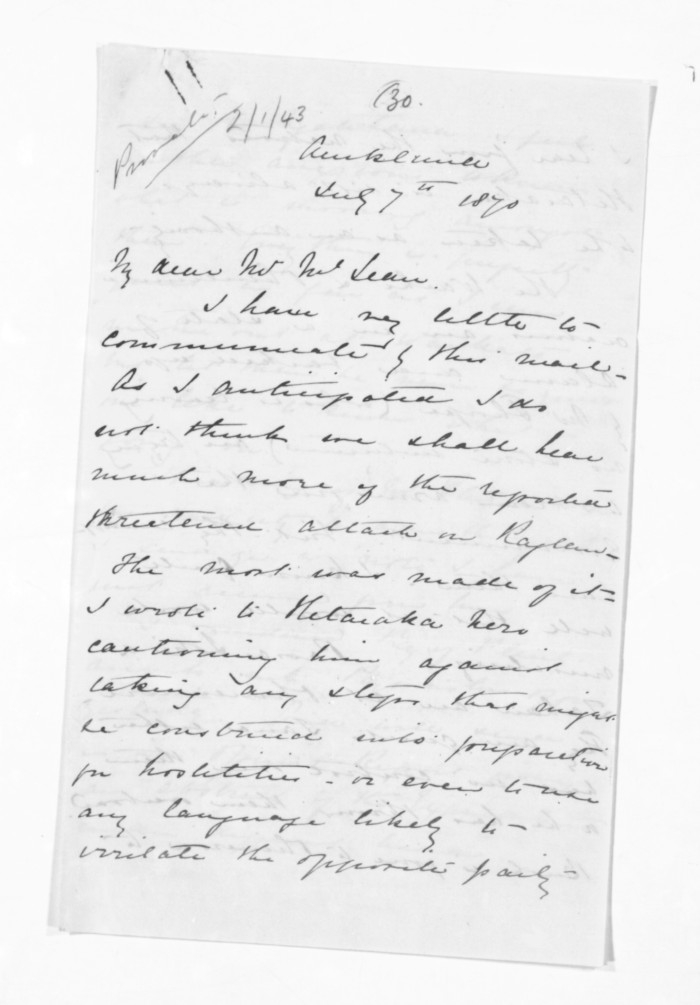 (30.
Private 2/1/43
Auckland
July 7th 1870
My dear Mr McLean.
I have very little to
communicate by this mail -
As I anticipated I do
not think we shall hear
much more of the reported
threatened attack on Raglan -
The most was made of it -
I wrote to Hetaraka Nero
cautioning him against
taking any steps that might
be construed into preparation
for hostilities - or even to use
any language likely to
irritate the opposite party